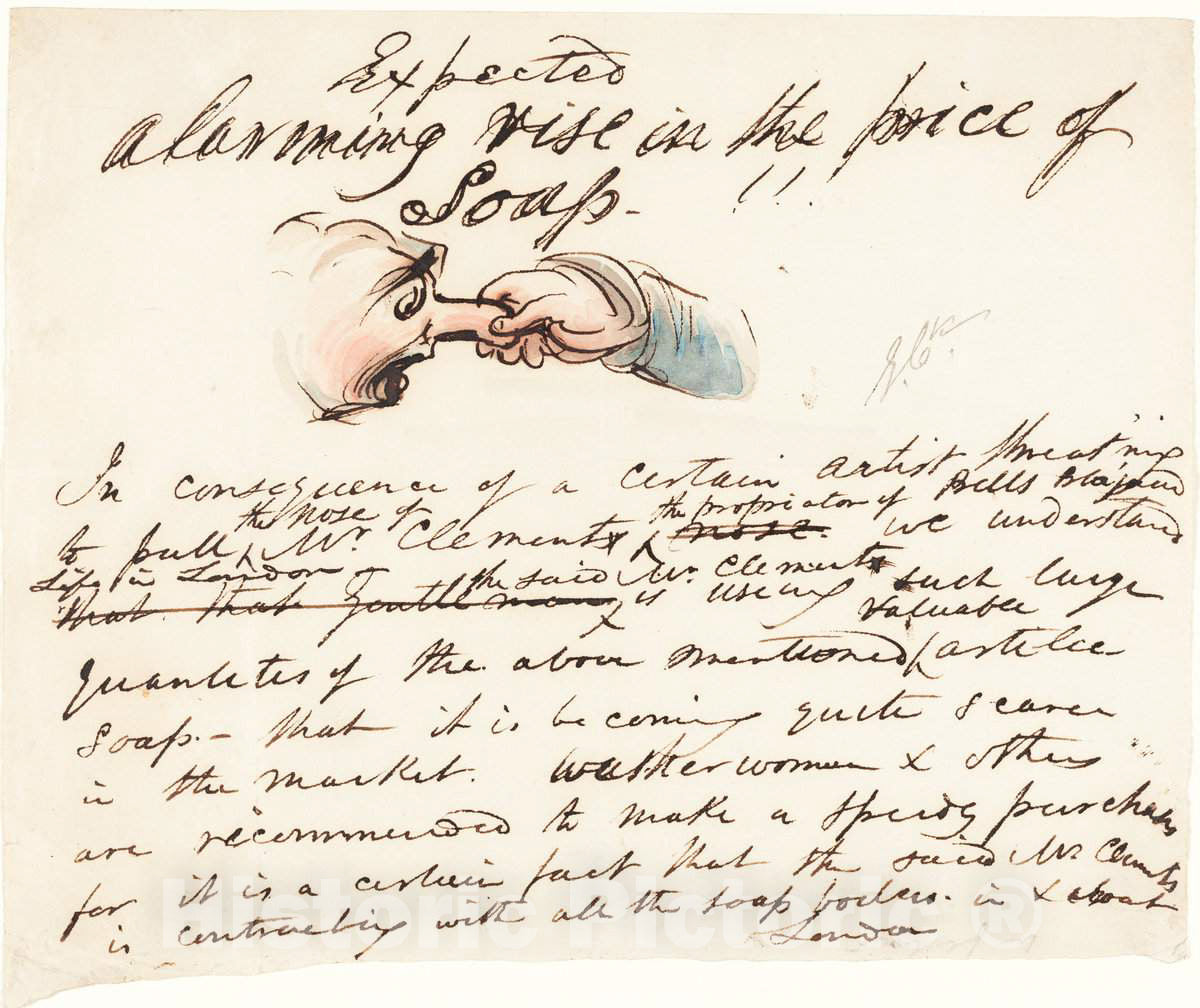 Expected
alarming rise in the price of
Soap - !!!
G. Ck.
In consequence of a certain artist threat'ning
the nose of the propriator of Bells
to pull Mr. Clements nose. we understand
Life in London - the said Mr. Clements
that that Gentleman is useing such large
valuable
quantetes of the above mentioned artilce
Soap. - that it is becoming quite scarce
in the market. washerwomen & others
are recommended to make a speedy purchase
for it is a certain fact that the said Mr. Clements
is contracting with all the soap boilers. in & about
London
Historic Pictoric ®